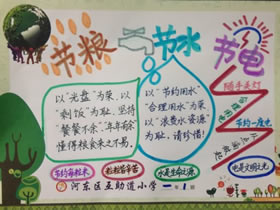 节粮
节水
节电
随手关灯
节约一度电
以“光盘”为荣,以
“剩饭”为耻,坚持
“餐餐不余”年年有余
懂得粮食来之不易。
以“节约用水”
“合理用水”为荣
以“浪费水资源”
为耻,请珍惜!
节约每粒米
粒粒皆辛苦
水是生命之源
电是文明之光
河东区互助道小学